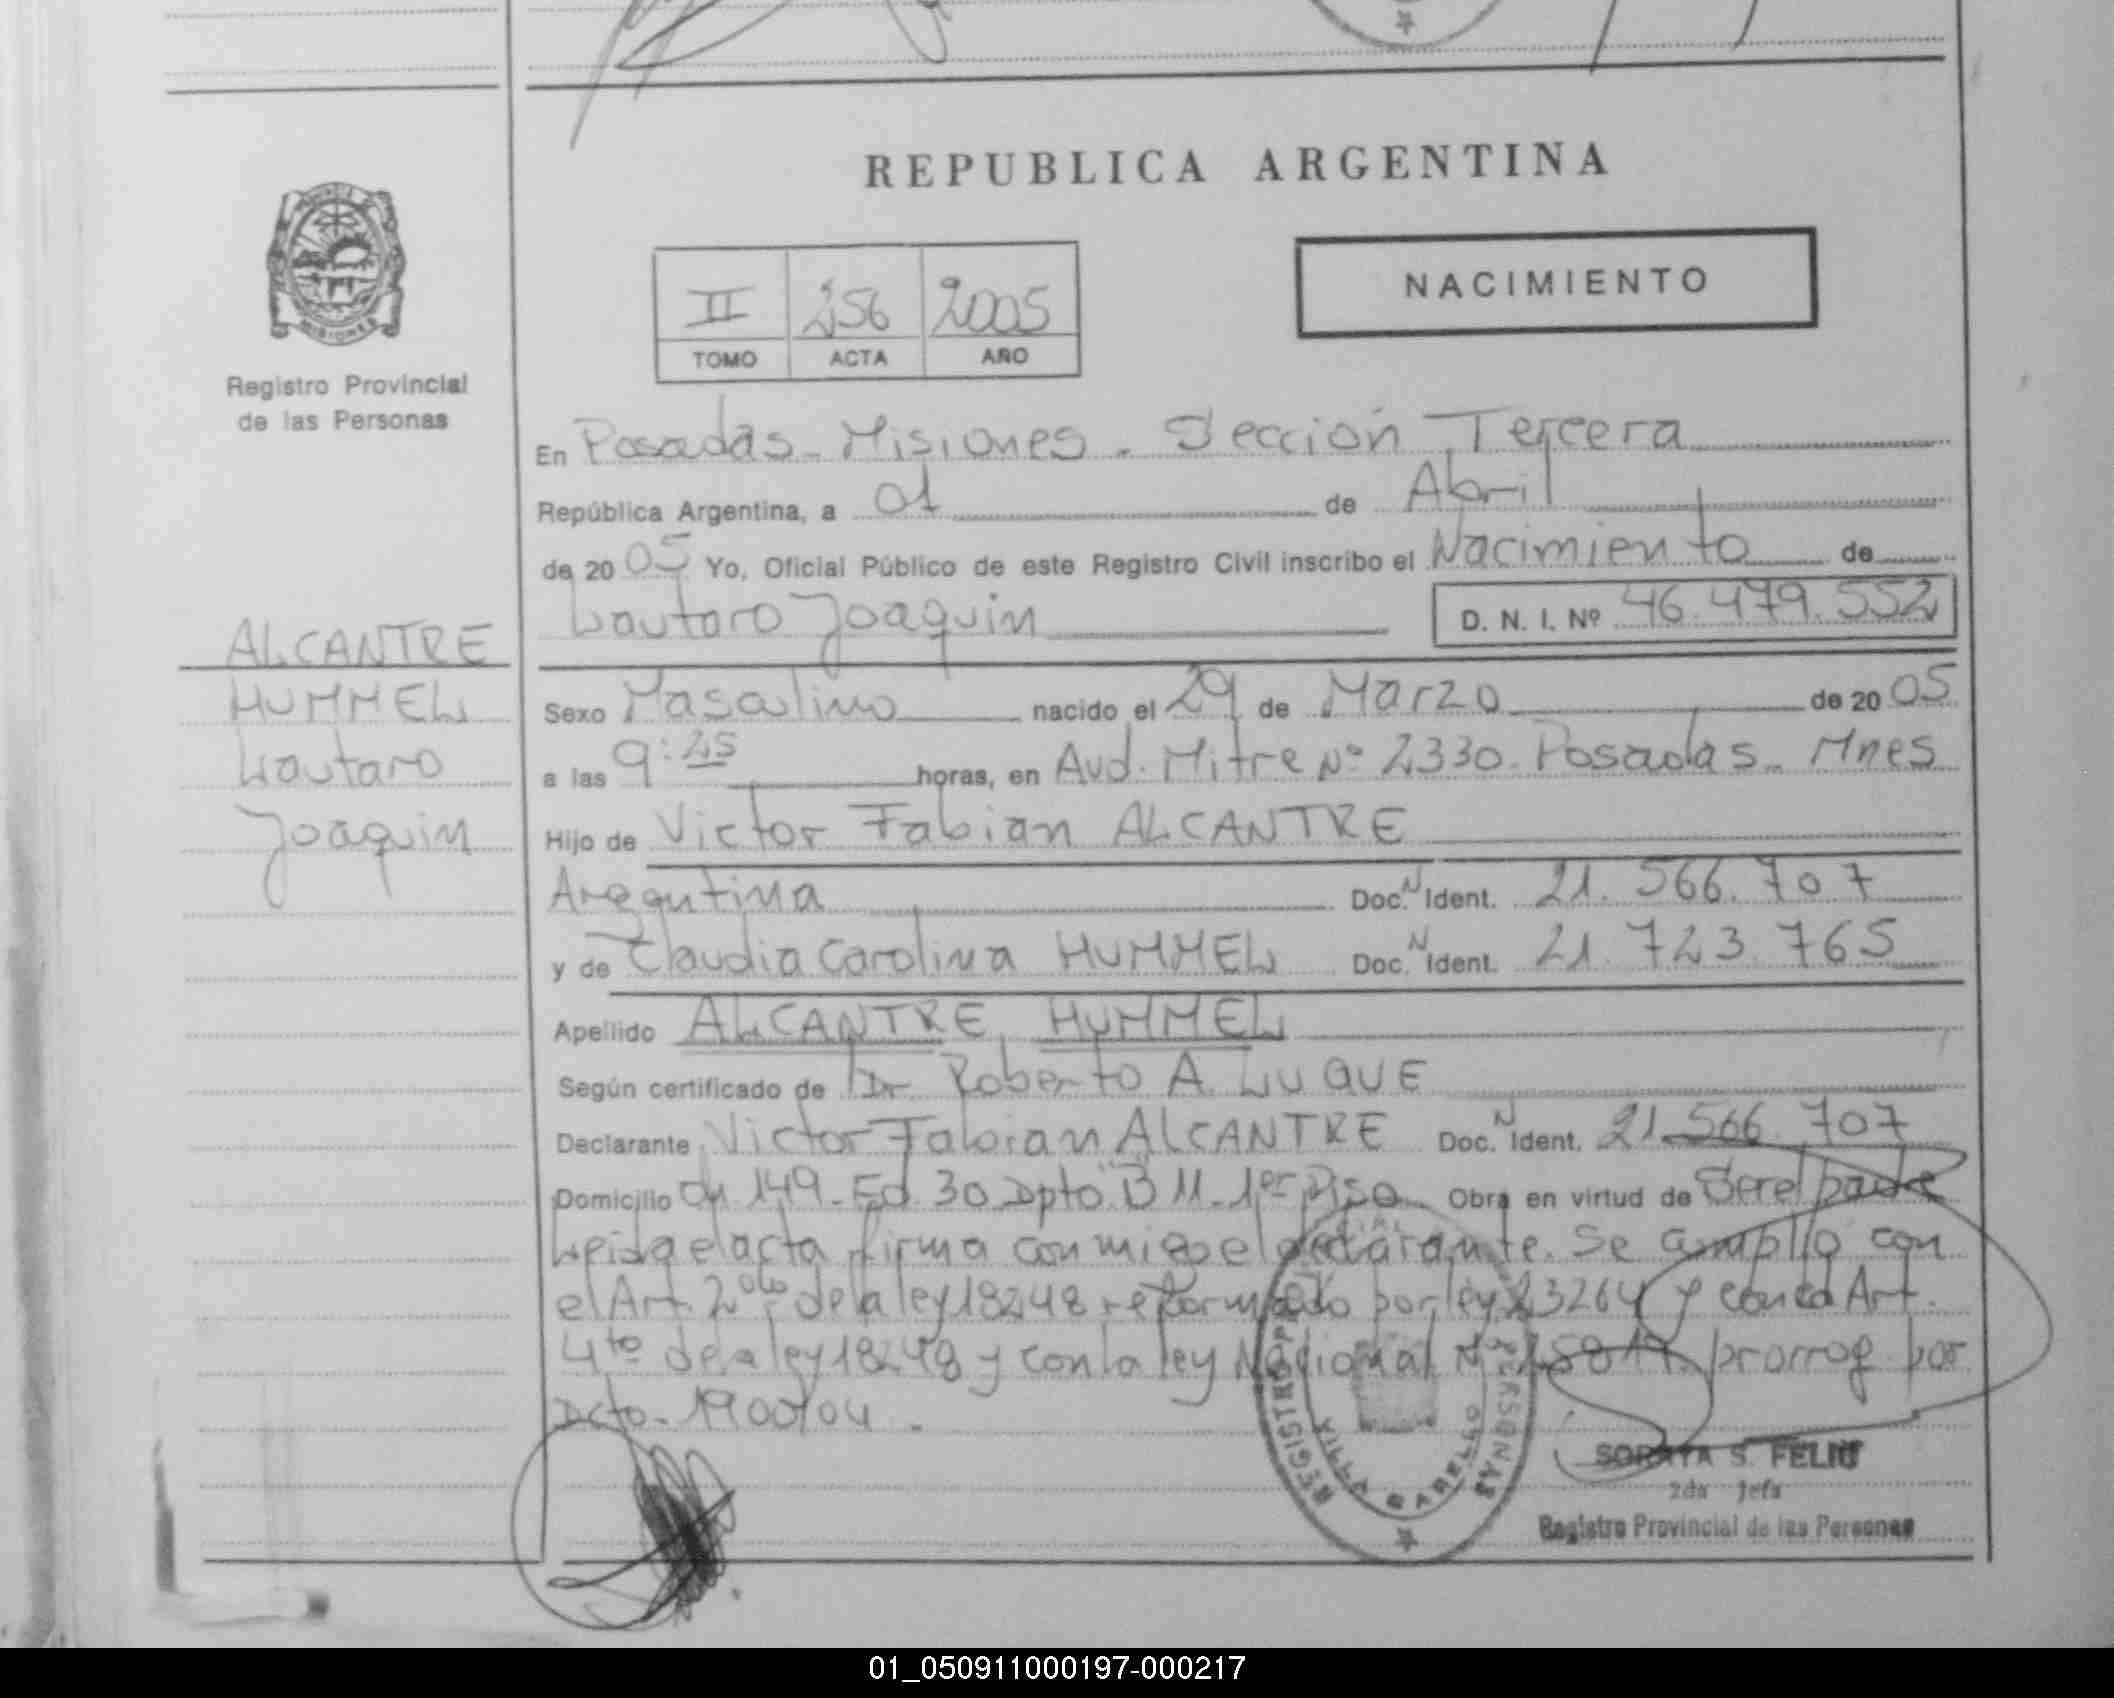 REPUBLICA ARGENTINA
MISIONES
Registro Provincial
de las Personas
II 256 2005
TOMO ACTA AÑO
NACIMIENTO
En Posadas - Misiones - Sección Tercera
República Argentina, a 01 de Abril
de 20 05 Yo, Oficial Público de este Registro Civil inscribo el Nacimiento de
Lautaro Joaquin D. N. I. Nº 46.479.552
ALCANTRE
HUMMEL
Lautaro
Joaquin
Sexo Masculino nacido el 29 de Marzo de 20 05
a las 9:25 horas, en Avd. Mitre Nº 2330. Posadas - Mnes
Hijo de Victor Fabian ALCANTRE
Argentina Doc. N Ident. 21.566.707
y de Claudia Carolina HUMMEL Doc. N Ident. 21.723.765
Apellido ALCANTRE HUMMEL
Según certificado de Dr. Roberto A. LUQUE
Declarante Victor Fabian ALCANTRE Doc. N Ident. 21.566.707
Domicilio Ch 149 - Ed. 30 Dpto "B" 11 - 1er Piso Obra en virtud de Ser el padre
Leida el acta firma conmigo el declarante. Se amplio con
el Art. 2do de la ley 18248 reformado por ley 23264 y con el Art.
4to de la ley 18248 y con la ley Nacional Nº 25819 prorrog por
Dcto - 1900/04 -
REGISTRO PROVINCIAL PERSONAS
VILLA SARELLO
SORAYA S. FELIU
2da Jefa
Registro Provincial de las Personas
01_050911000197-000217